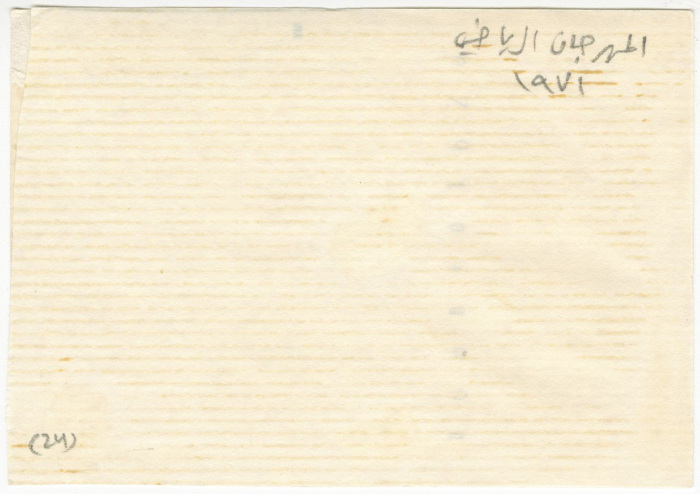 المهرجان الرياضي
١٩٧١
(24)